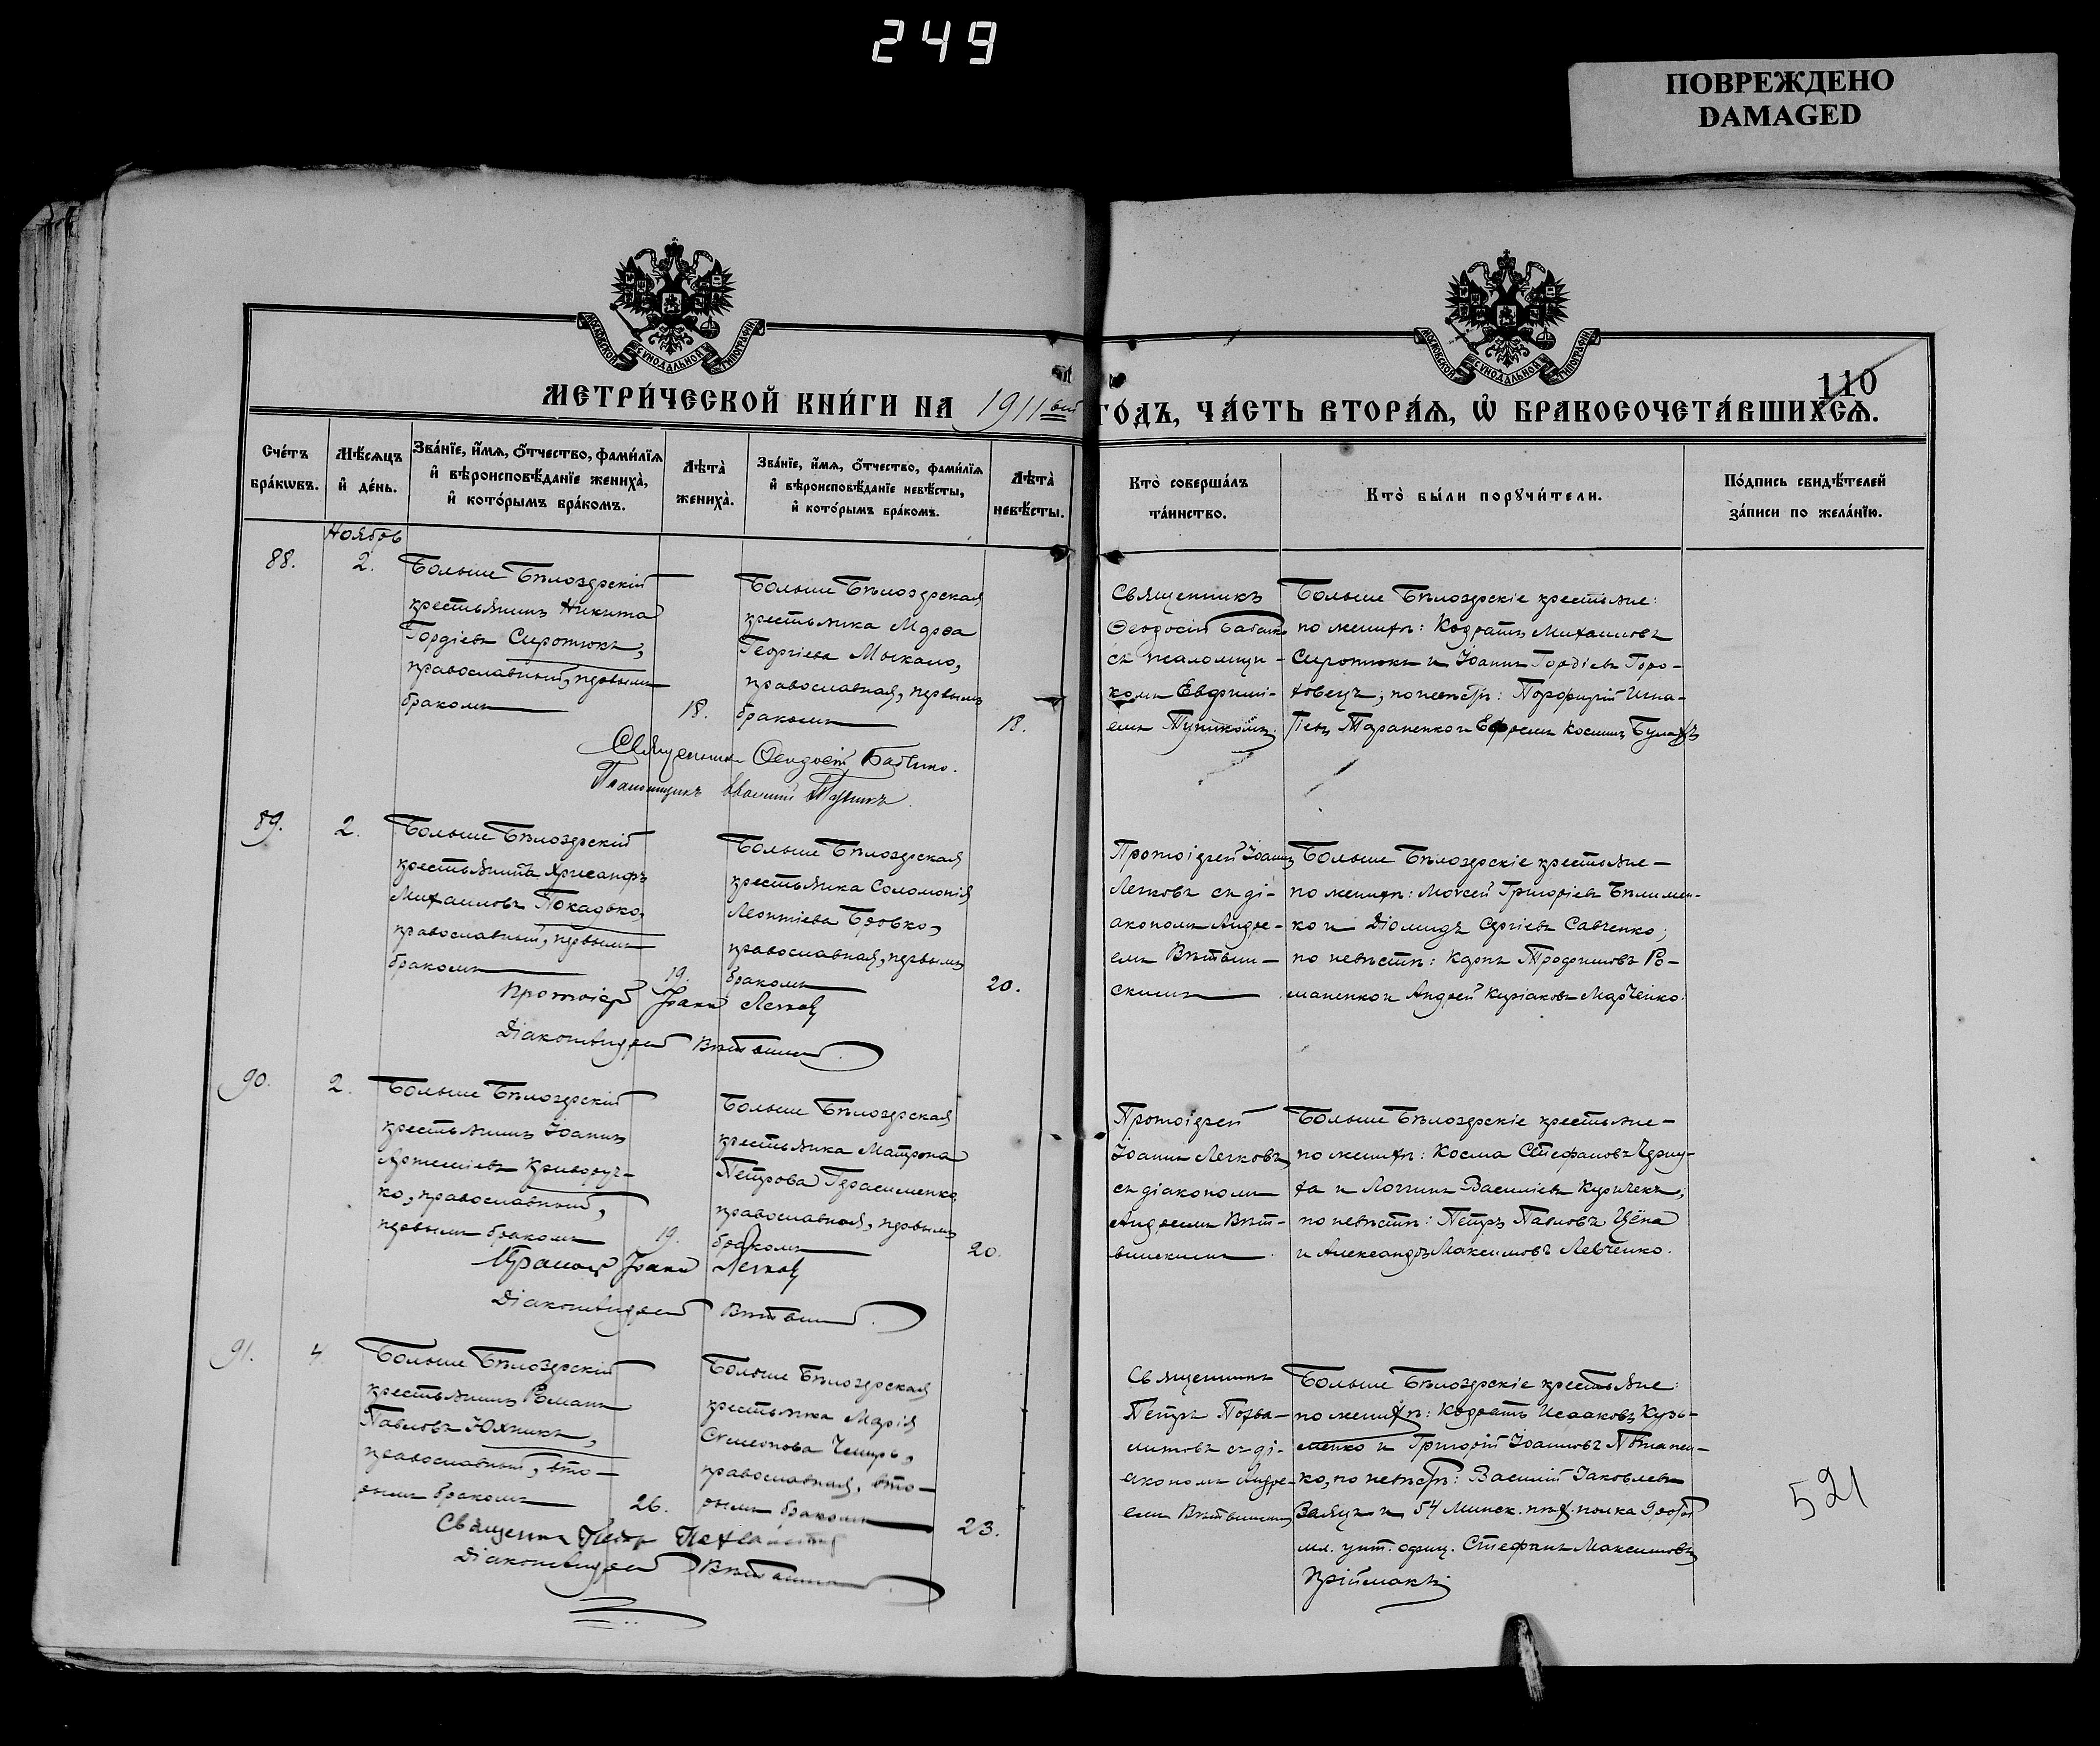 249
ПОВРЕЖДЕНО
DAMAGED
МОСКОВСКОЙ СѴНОДАЛЬНОЙ ТИПОГРАФІИ
МОСКОВСКОЙ СѴНОДАЛЬНОЙ ТИПОГРАФІИ
110
МЕТРИ́ЧЕСКОЙ КНИ́ГИ НА 1911 ый
ГО́ДЪ, ЧА́СТЬ ВТОРА́Ѧ, Ѡ҆ БРАКОСОЧЕТА́ВШИХСѦ.
Сче́тъ
бра́кѡвъ.
Мѣ́сѧцъ
и҆ де́нь.
Зва́нїе, и҆́мѧ, ѻ҆́тчество, фами́лїѧ
и҆ вѣроисповѣ́данїе жениха̀,
и҆ кото́рымъ бра́комъ.
Лѣ́та̀
жениха̀.
Зва́нїе, и҆́мѧ, ѻ҆́тчество, фами́лїѧ
и҆ вѣроисповѣ́данїе невѣ́сты,
и҆ кото́рымъ бра́комъ.
Лѣ́та̀
невѣ́сты.
Кто̀ соверша́лъ
та́инство.
Кто̀ бы́ли порꙋчи́тели.
По́дпись свидѣ́телей
за́писи по жела́нїю.
Ноябрь
88.
2.
Больше Бѣлозерскій
крестьянинъ Никита
Гордіевъ Сиротюкъ,
православный, первымъ
бракомъ
18.
Больше Бѣлозерская
крестьянка Марѳа
Георгіева Мыкало,
православная, первымъ
бракомъ
18.
Священникъ
Ѳеодосій Бабенко
съ псаломщи-
комъ Евфимі-
емъ Тупикомъ.
Больше Бѣлозерскіе крестьяне:
по женихѣ: Кодратъ Михаиловъ
Сиротюкъ и Іоаннъ Гордіевъ Горо-
ховецъ; по невѣстѣ: Порфирій Игна-
тіевъ Тараненко и Ефремъ Космин Булахъ
Священникъ Ѳеодосій Бабенко.
Псаломщикъ Тупикъ.
89.
2.
Больше Бѣлозерскій
крестьянинъ Хрисанфъ
Михаиловъ Покадько,
православный, первымъ
бракомъ
19.
Больше Бѣлозерская
крестьянка Соломонія
Леонтіева Бровко,
православная, первымъ
бракомъ
20.
Протоіерей Іоаннъ
Легковъ съ ді-
акономъ Андре-
емъ Вѣтвин-
скимъ
Больше Бѣлозерскіе крестьяне-
по женихѣ: Моѵсей Григоріевъ Бѣлимен-
ко и Діомидъ Сергіевъ Савченко;
по невѣстѣ: Карпъ Трофимовъ Ро-
маненко и Андрей Куріаковъ Марченко.
Протоіерей Іоаннъ Легковъ
Діаконъ Андрей Вѣтвин
90.
2.
Больше Бѣлозерскій
крестьянинъ Іоаннъ
Артеміевъ Криворуч-
ко, православный,
первымъ бракомъ
19.
Больше Бѣлозерская
крестьянка Матрона
Петрова Герасименко,
православная, первымъ
бракомъ
20.
Протоіерей
Іоаннъ Легковъ
съ діакономъ
Андреемъ Вѣт-
винскимъ
Больше Бѣлозерскіе крестьяне-
по женихѣ: Косма Стефановъ Черну-
ха и Логгинъ Василіевъ Куричекъ;
по невѣстѣ: Петръ Павловъ Цёка
и Александръ Максимовъ Левченко.
Протоіерей Іоаннъ Легковъ
Діаконъ Андрей Вѣтвин
91.
4.
Больше Бѣлозерскій
крестьянинъ Романъ
Павловъ Юхникъ,
православный, вто-
рымъ бракомъ
26.
Больше Бѣлозерская
крестьянка Марія
Симеонова Чмиръ,
православная, вто-
рымъ бракомъ
23.
Священникъ
Петръ Похва-
литовъ съ ді-
акономъ Андре-
емъ Вѣтвинскимъ
Больше Бѣлозерскіе крестьяне:
по женихѣ: Кодратъ Исааковъ Кузь-
менко и Григорій Іоанновъ Потапен-
ко, по невѣстѣ: Василій Іаковлевъ
Заяцъ и 54 Минск. пѣх. полка 9 роты
мл. унт. офиц. Стефанъ Максимовъ
Пріймакъ
Священникъ Петръ
Діаконъ Андрей Вѣтвин
521